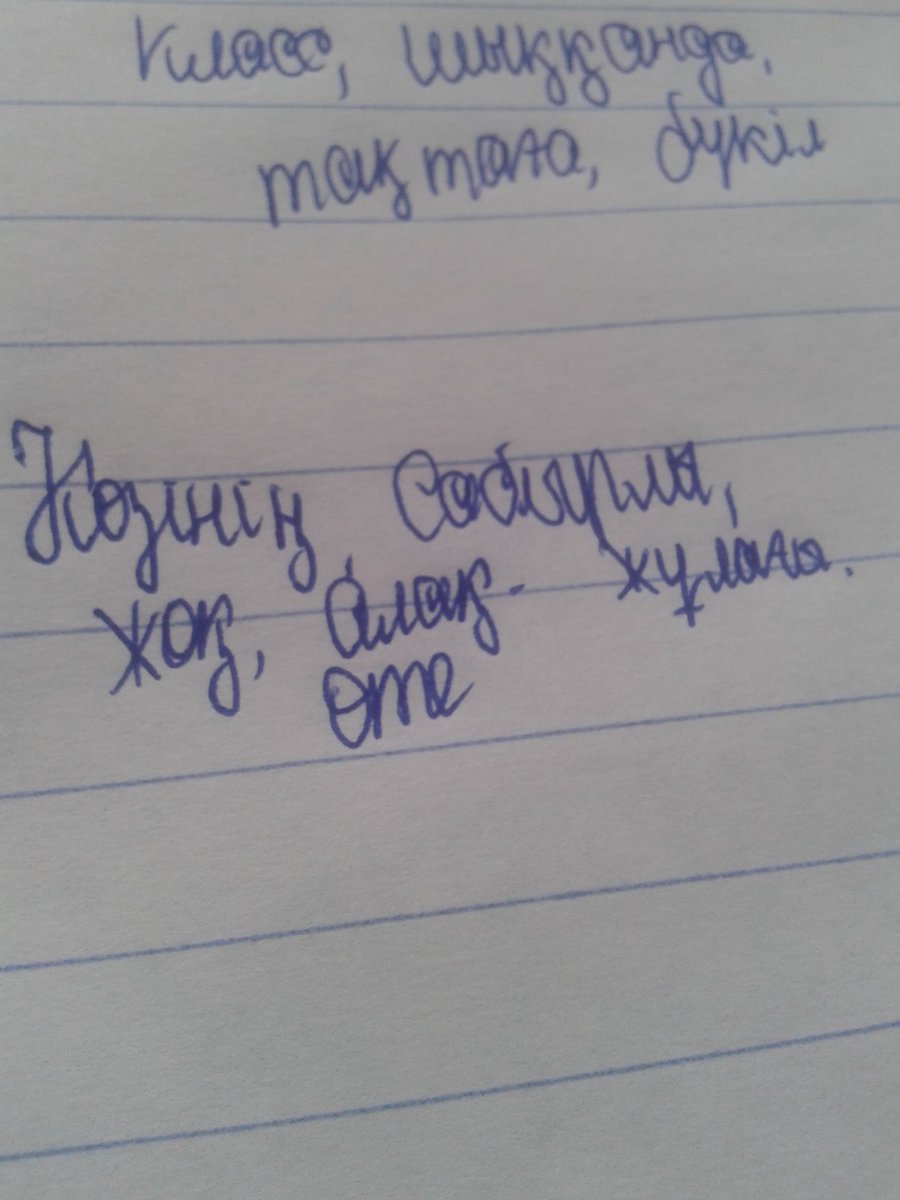 класс, шыққанда,
тақтаға, бүкіл
Көзінің, Сабырлы,
жоқ, Алақ- жұлаға.
Өте